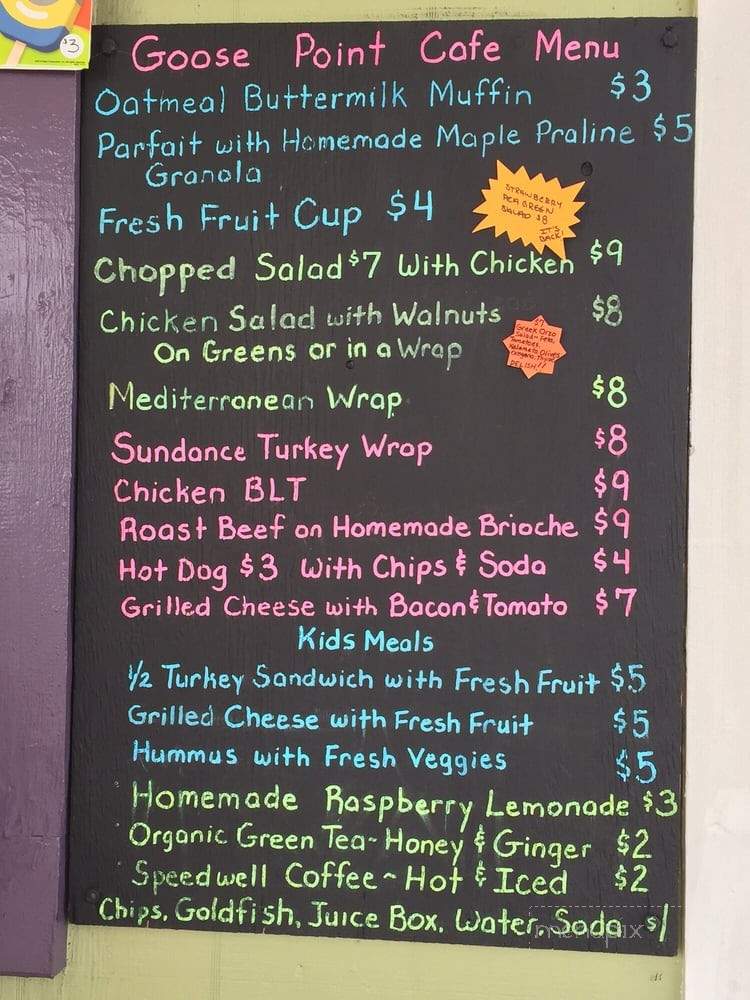 $3
Goose Point Cafe Menu
Oatmeal Buttermilk Muffin $3
Parfait with Homemade Maple Praline $5
Granola
Fresh Fruit Cup $4
STRAWBERRY
PEA GREEN
SALAD $8
IT'S
BACK!
Chopped Salad $7 With Chicken $9
Chicken Salad with Walnuts $8
On Greens or in a Wrap
$7
Greek Orzo
Salad - Feta,
Tomatoes,
Kalamata Olives
Oregano,
DELISH!!
Mediterranean Wrap $8
Sundance Turkey Wrap $8
Chicken BLT $9
Roast Beef on Homemade Brioche $9
Hot Dog $3 With Chips & Soda $4
Grilled Cheese with Bacon & Tomato $7
Kids Meals
1/2 Turkey Sandwich with Fresh Fruit $5
Grilled Cheese with Fresh Fruit $5
Hummus with Fresh Veggies $5
Homemade Raspberry Lemonade $3
Organic Green Tea~Honey & Ginger $2
Speedwell Coffee ~ Hot & Iced $2
Chips, Goldfish, Juice Box, Water, Soda $1
menupix